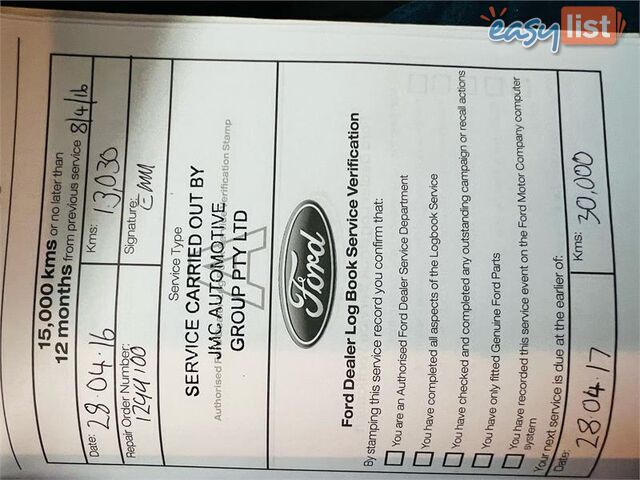 easylist
15,000 kms or no later than
12 months from previous service 8/4/16
Date: 28.04.16 Kms: 13,030
Repair Order Number: Signature:
1294100
Service Type
SERVICE CARRIED OUT BY
JMC AUTOMOTIVE
GROUP PTY LTD
Authorised Verification Stamp
A
Ford
Ford Dealer Log Book Service Verification
By stamping this service record you confirm that:
You are an Authorised Ford Dealer Service Department
You have completed all aspects of the Logbook Service
You have checked and completed any outstanding campaign or recall actions
You have only fitted Genuine Ford Parts
You have recorded this service event on the Ford Motor Company computer
system
Your next service is due at the earlier of:
Date: 28.04.17 Kms: 30,000